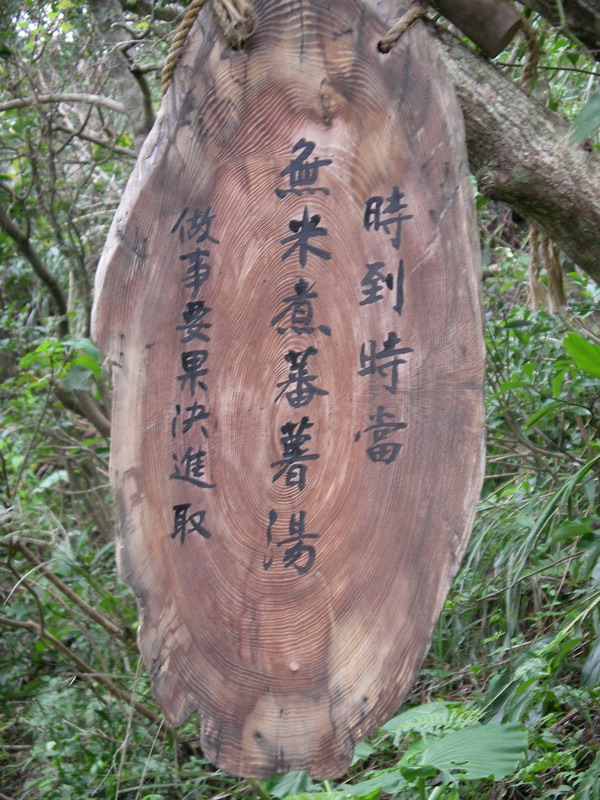 時到時當
無米煮蕃薯湯
做事要果決進取